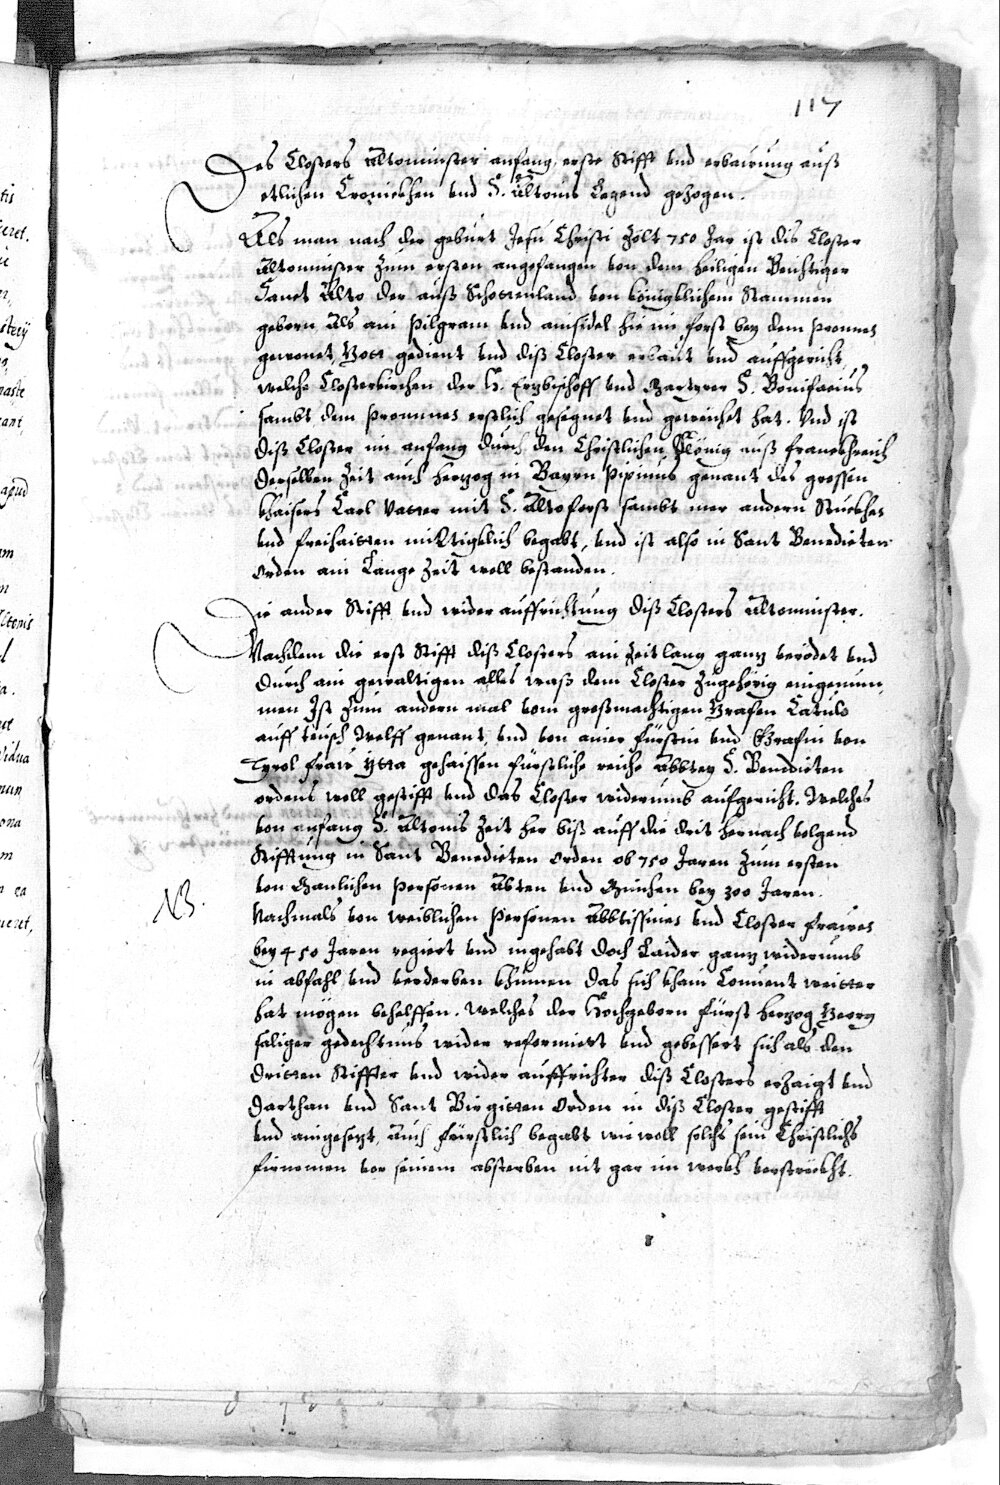 117
Des Closters Altominster anfang, erste Stifft vnd erbawung auß
etlichen Cronickhen vnd S. Altonis Legend gezogen.
Als man nach der geburt Jesu Christi zölt 750 Jar ist dis Closter
Altominster zum ersten angefangen von dem heiligen Beichtiger
Sanct Alto der auß Schottenland von königklichem Stammen
geborn Als ain Pilgram vnd ainsidel hie im forst bey dem Pronnen
gewonet, Gott gedient vnd diß Closter erbaut vnd auffgericht
welche Closterkirchen der H. Erzbischoff vnd Martyrer S. Bonifacius
sambt dem Pronnnen erstlich gesegnet vnd geweichet hat. Vnd ist
diß Closter im anfang durch den Christlichen König auß franckhreich
derselben Zeit auch Hertzog in Bayrn Pipinus genant des grossen
Khaisers Carl Vatter mit S. Alto forst sambt mer andern Stuckhen
vnd freihaitten miltigklich begabt, vnd ist also in Sant Benedicten
orden ain Lange Zeit woll bestanden.
Die ander Stifft vnd wider auffrichtung diß Closters Altominster.
Nachdem die erst Stifft diß Closters ain Zeitlang gantz verödet vnd
durch ain gewaltigen alles waß dem Closter zugehörig eingenum
men Ist zum andern mal vom großmachtigen Grafen Catulo
auff teusch Welff genant, vnd von ainer fürstin vnd Grafin von
Tyrol fraw Ytta gehaissen fürstliche reiche Abbtey S. Benedicten
ordens woll gestifft vnd das Closter widerumb aufgericht. Welches
von anfang S. Altonis Zeit her biß auff die drit hernach volgend
Stifftung in Sant Benedicten orden ob 750 Jaren zum ersten
von Manlichen Personen Äbten vnd München bey 300 Jaren.
NB.
Nachmals von weiblichen Personen Äbbtissinen vnd Closter frawen
bey 450 Jaren regiert vnd ingehabt doch Laider gantz widerumb
in abfahl vnd verderben khumen das sich khain Conuent weitter
hat mögen behelffen. Welches der Hochgeborn fürst Hertzog Georg
säliger gedechtnus wider reformiert vnd gebessert sich als den
dritten Stiffter vnd wider auffrichter diß Closters erzaigt vnd
darthan vnd Sant Birgitten Orden in diß Closter gestifft
vnd aingesetzt, Auch fürstlich begabt wie woll solchs sein Christlichs
firnemen vor seinem absterben nit gar im werkh verstreckht.